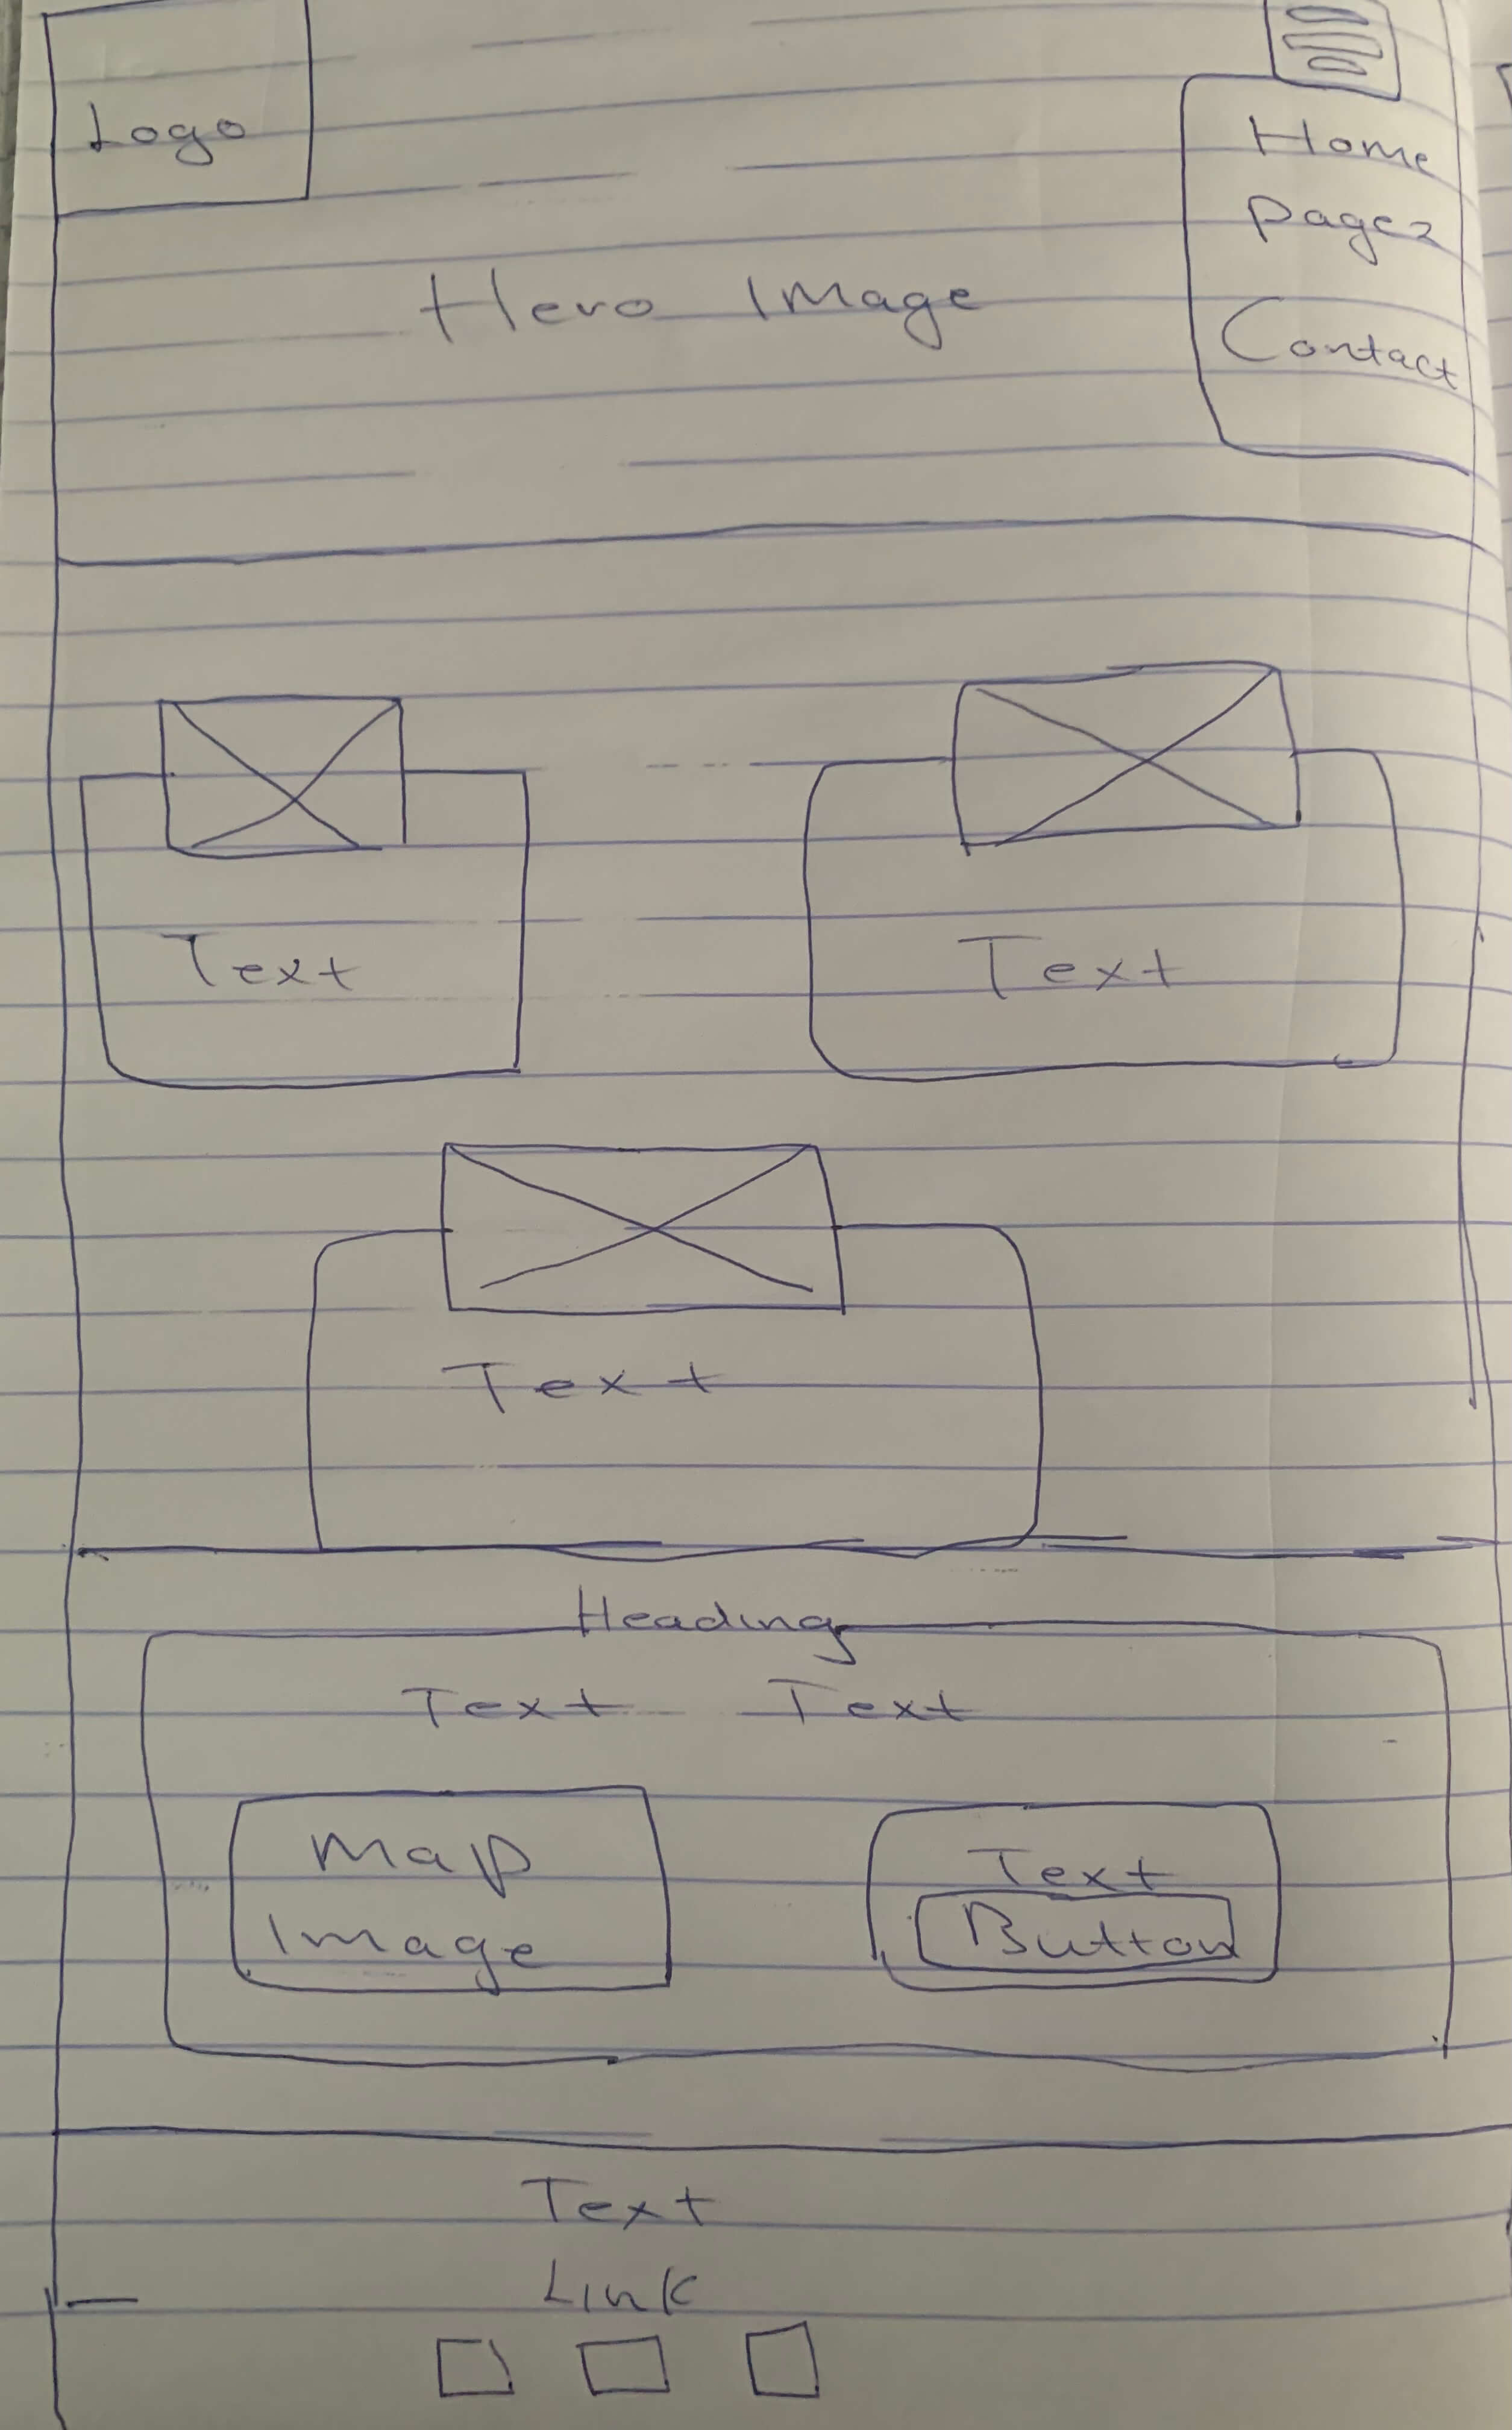 Logo
Home
page2
Contact
Hero Image
Text
Text
Text
Heading
Text Text
Map
Image
Text
Button
Text
Link